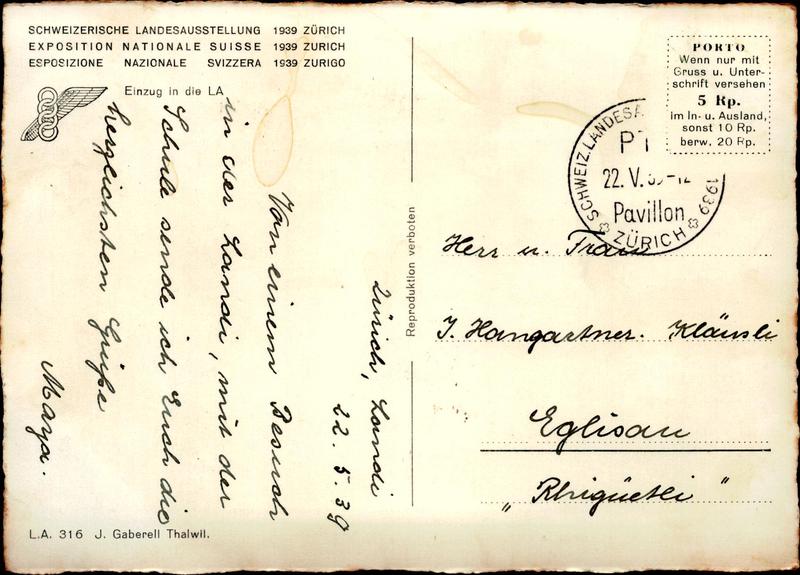 SCHWEIZERISCHE LANDESAUSSTELLUNG 1939 ZÜRICH
EXPOSITION NATIONALE SUISSE 1939 ZURICH
ESPOSIZIONE NAZIONALE SVIZZERA 1939 ZURIGO
Einzug in die LA
Zürich, Landi
22. 5. 39
Von einem Besuch
in der Landi, mit der
Schule sende ich Euch die
herzlichsten Grüße
Maya.
L.A. 316 J. Gaberell Thalwil.
Reproduktion verboten
PORTO
Wenn nur mit
Gruss u. Unter-
schrift versehen
5 Rp.
im In- u. Ausland,
sonst 10 Rp.
berw. 20 Rp.
SCHWEIZ. LANDESA
PT
22. V. 39-12
Pavillon
ZÜRICH
1939
Herr u. Frau
J. Hangartner. Kläusli
Eglisau
„Rhigüetli"